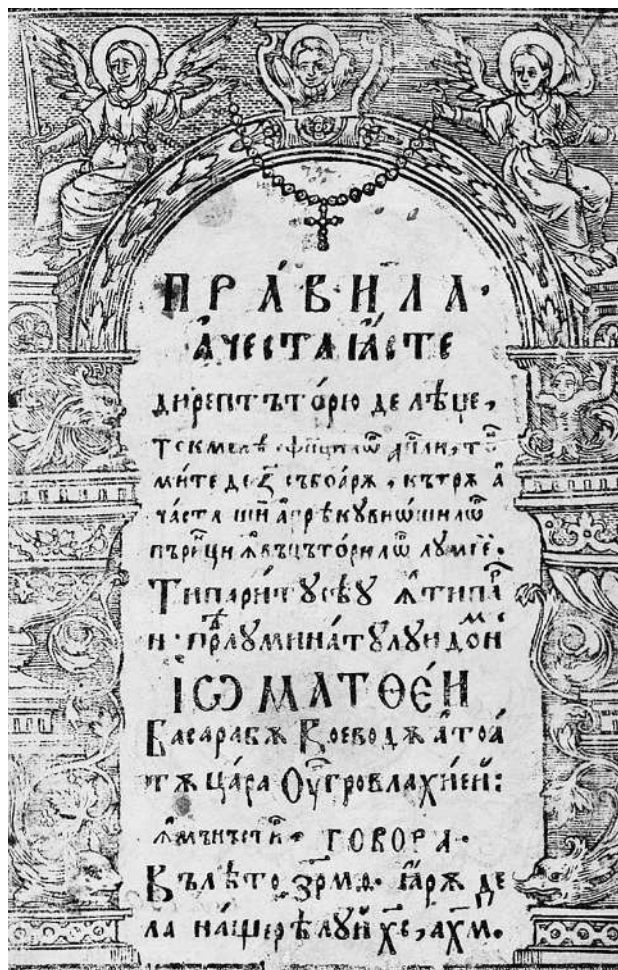 ПРА́ВИЛА·
А҆ЧЕСТА ꙖСТЕ
дирептъто́рю де лѣџе,
токмелѣ сфи҃цилѡ а҆п҃ли, то
мите де з҃ съ́боарѫ, кътрѫ а҆
часта ши а҆ прѣкувиѡшилѡ
пъри́нци ꙟвъцъто́рилѡ лумїе́.
Типари́тусѣу ꙟ типа́р
и· прѣлумина́тулуи до́мн
І҆Ѡ МАТѲЕ́И
Басарабѫ Воеводѫ а҆ тоа́
тѫ ца́ра Оу҆гровлахи́ей:
ꙟ мънъсти· ГОВОРА·
Въ лѣто ҂зрмѳ· ꙗ҆рѫ де
ла на́щерѣ луи х҃с, ҂ахм·